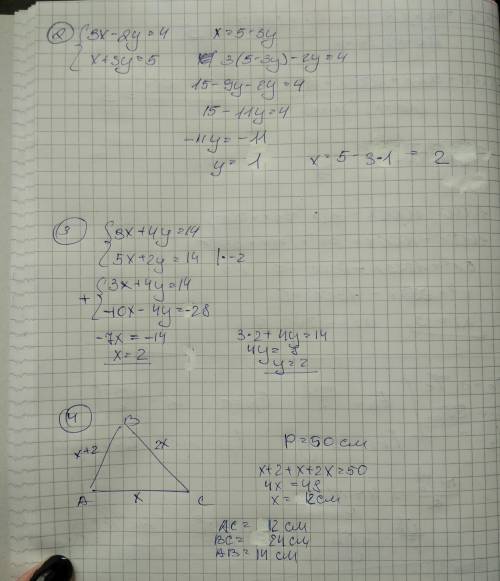 2 { 3x-2y=4 x=5-3y
x+3y=5 3(5-3y)-2y=4
15-9y-2y=4
15-11y=4
-11y=-11
y=1 x=5-3·1=2
3 { 3x+4y=14
5x+2y=14 |·-2
+ { 3x+4y=14
-10x-4y=-28
-7x=-14 3·2+4y=14
x=2 4y=8
y=2
4 B
x+2 2x P=50см
x+2+x+2x=50
4x=48
A x C x=12см
AC=12см
BC=24см
AB=14см